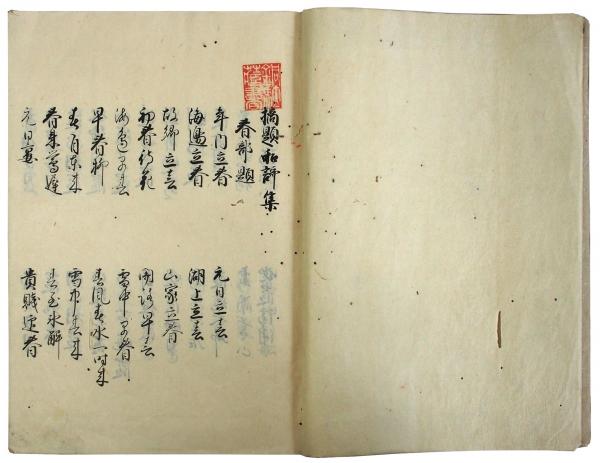 摘題和謌集
春部題
年内立春
元日立春
海邊立春
湖上立春
故郷立春
山家立春
初春待花
関路早春
海邊早春
雪中早春
早春柳
春風春水一時来
春自東来
雪中春来
春来鶯遅
春至氷解
元日宴
貴賤迎春